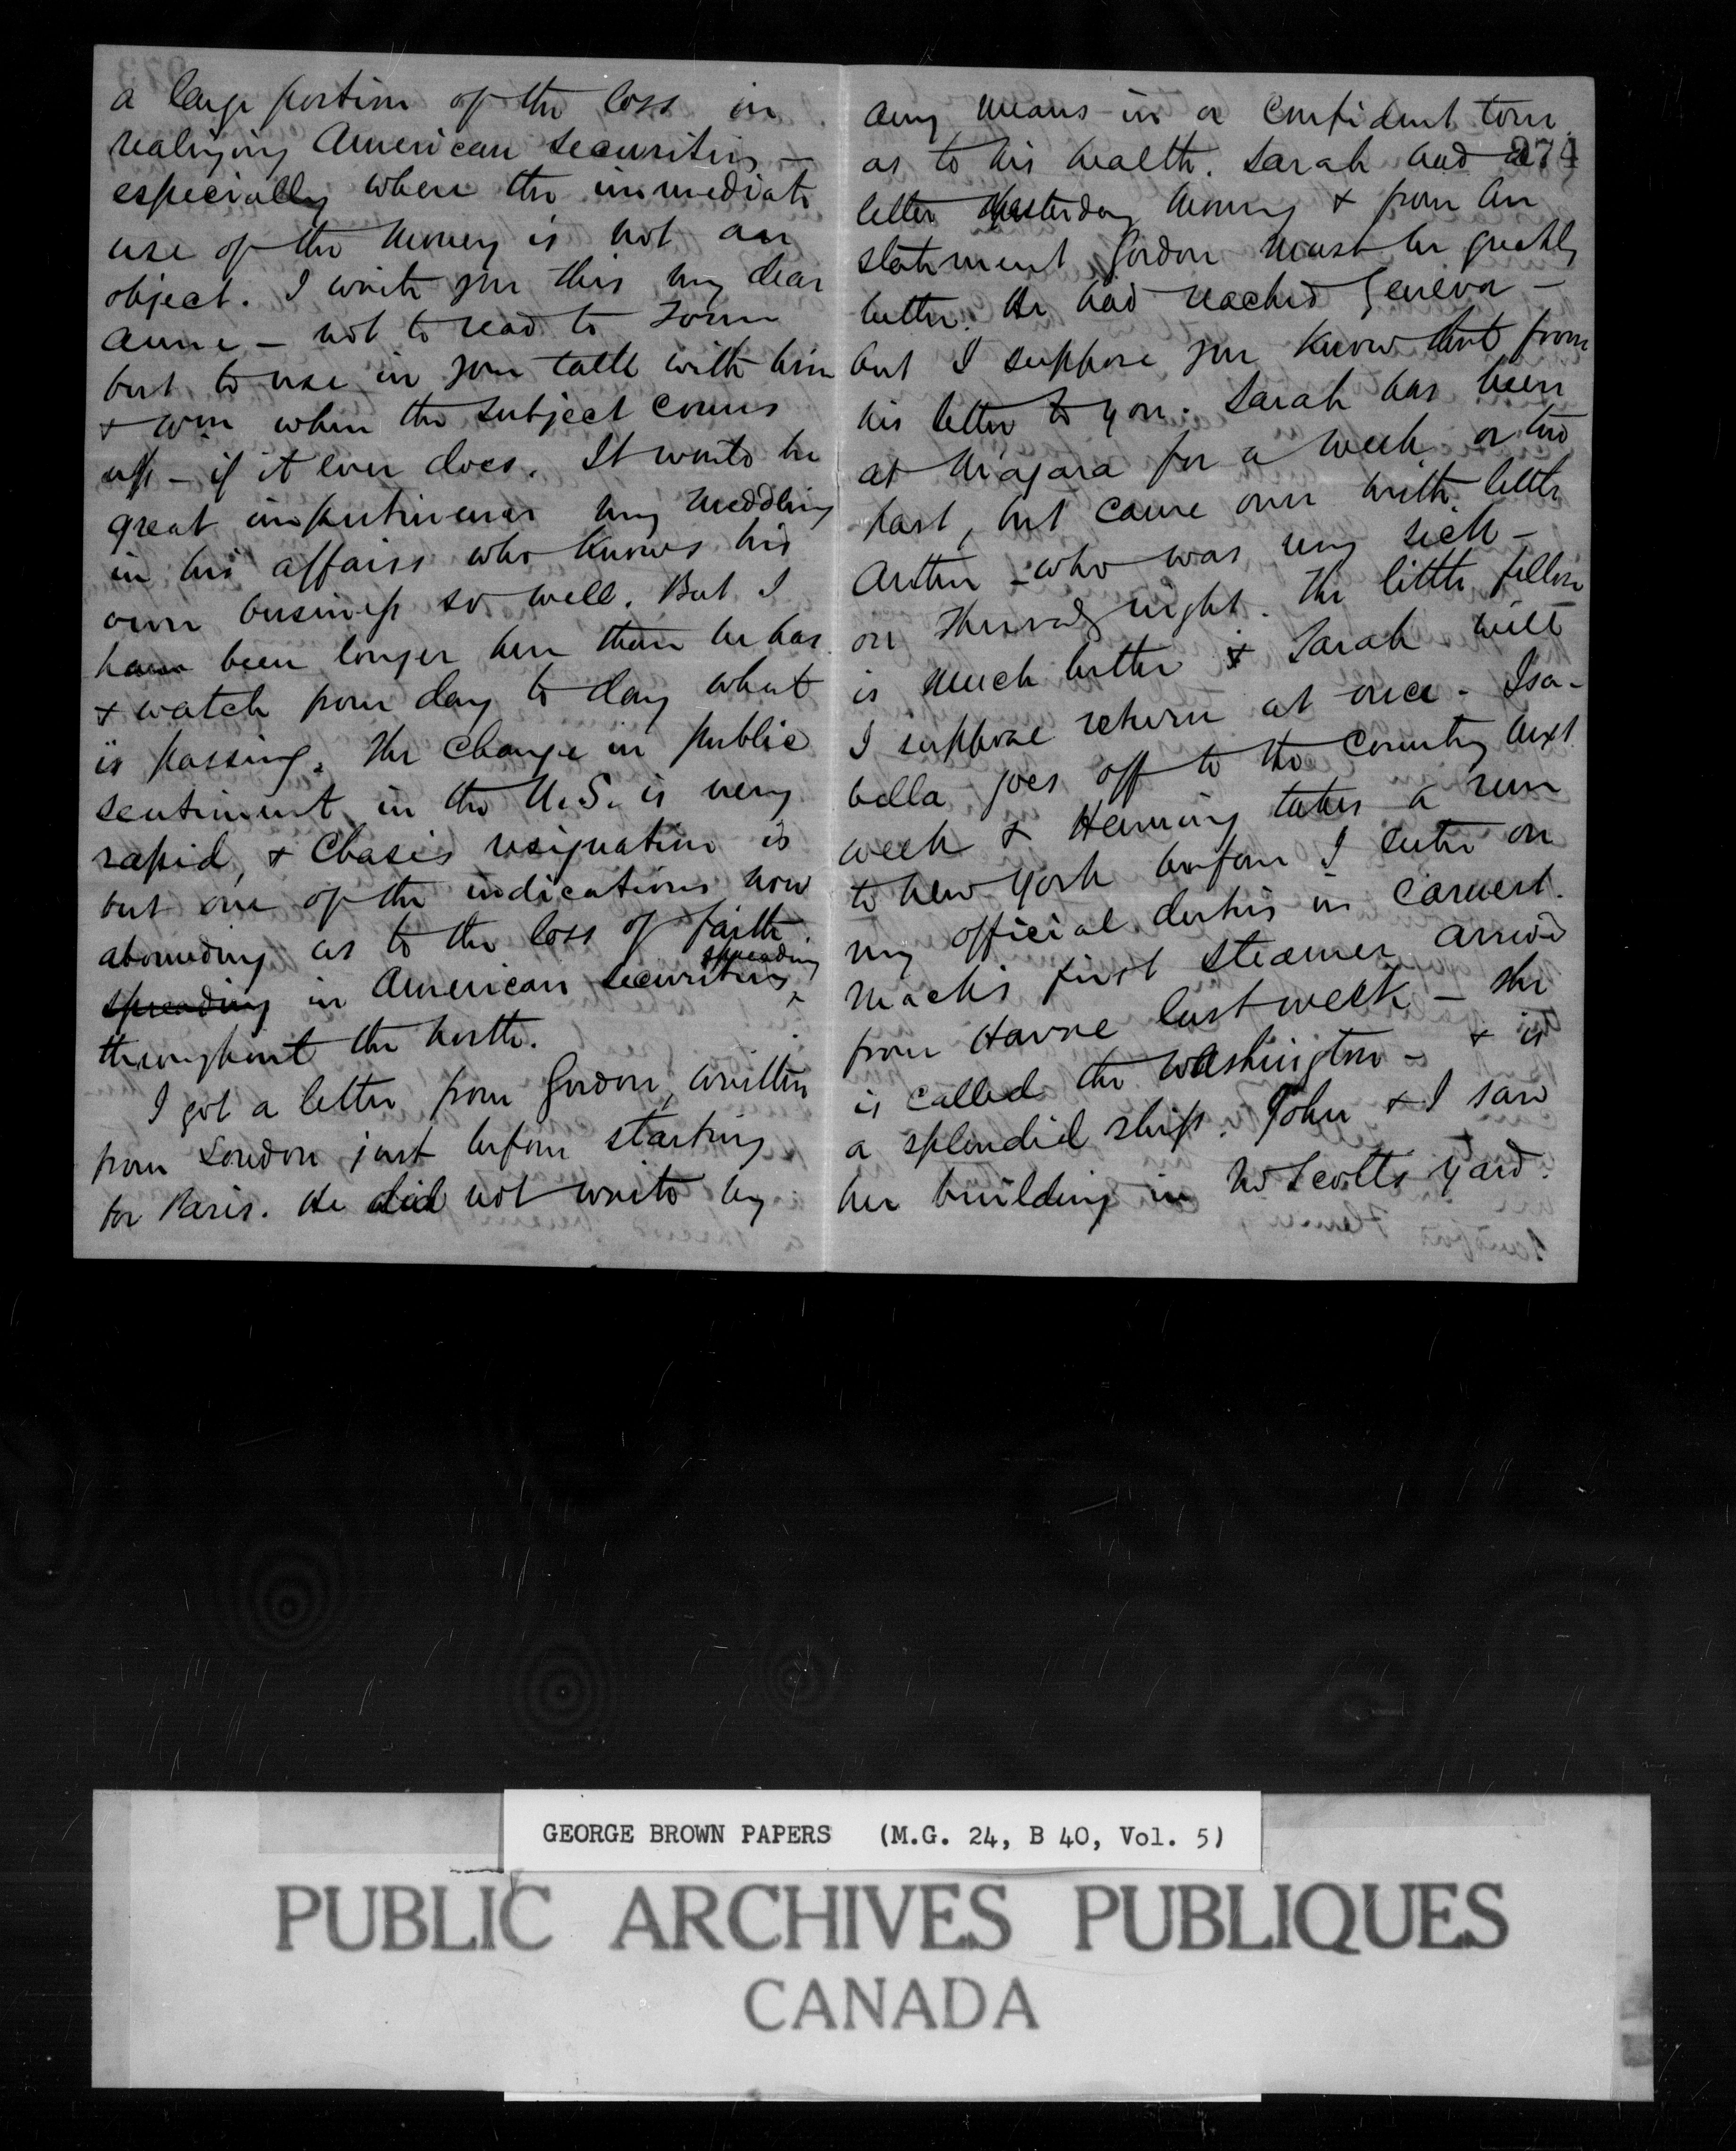 a large portion of the loss in
realizing American securities —
especially where the immediate
use of the money is not an
object. I write you this my dear
Anne — not to read to Tom
but to use in your talk with him
& Wm when the subject comes
up — if it ever does. It would be
great impertinence my meddling
in his affairs who knows his
own business so well. But I
have been longer here than he has
& watch from day to day what
is passing. The change in public
sentiment in the U.S. is very
rapid, & Chase's resignation is
but one of the indications now
abounding as to the loss of faith
spreading in American securities spreading
throughout the north.
I got a letter from Gordon, written
from London just before starting
for Paris. He did not write by
any means in a confident tone
as to his health. Sarah had a 974
letter yesterday morning & from her
statement Gordon must be greatly
better. He had reached Geneva —
but I suppose you know that from
his letter to you. Sarah has been
at Niagara for a week or two
past, but came over with little
Arthur — who was very sick —
on Thursday night. The little fellow
is much better & Sarah will
I suppose return at once. Isa-
bella goes off to the country next
week & Henning takes a run
to New York before I enter on
my official duties in earnest.
Mack's first steamer arrived
from Havre last week — she
is called the Washington — & is
a splendid ship. John & I saw
her building in Scotts yard.
GEORGE BROWN PAPERS (M.G. 24, B 40, Vol. 5)
PUBLIC ARCHIVES PUBLIQUES
CANADA